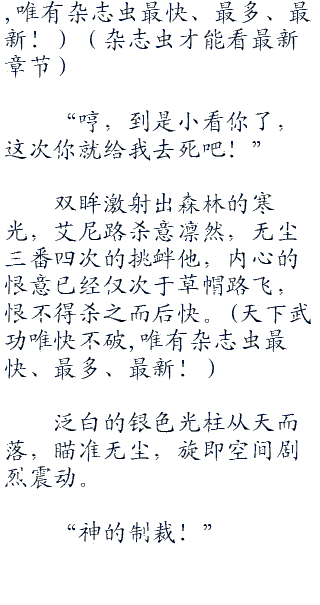 ,唯有杂志虫最快、最多、最
新！）（杂志虫才能看最新
章节）
“哼，到是小看你了，
这次你就给我去死吧！”
双眸激射出森林的寒
光，艾尼路杀意凛然，无尘
三番四次的挑衅他，内心的
恨意已经仅次于草帽路飞，
恨不得杀之而后快。(天下武
功唯快不破,唯有杂志虫最
快、最多、最新！)
泛白的银色光柱从天而
落，瞄准无尘，旋即空间剧
烈震动。
“神的制裁！”